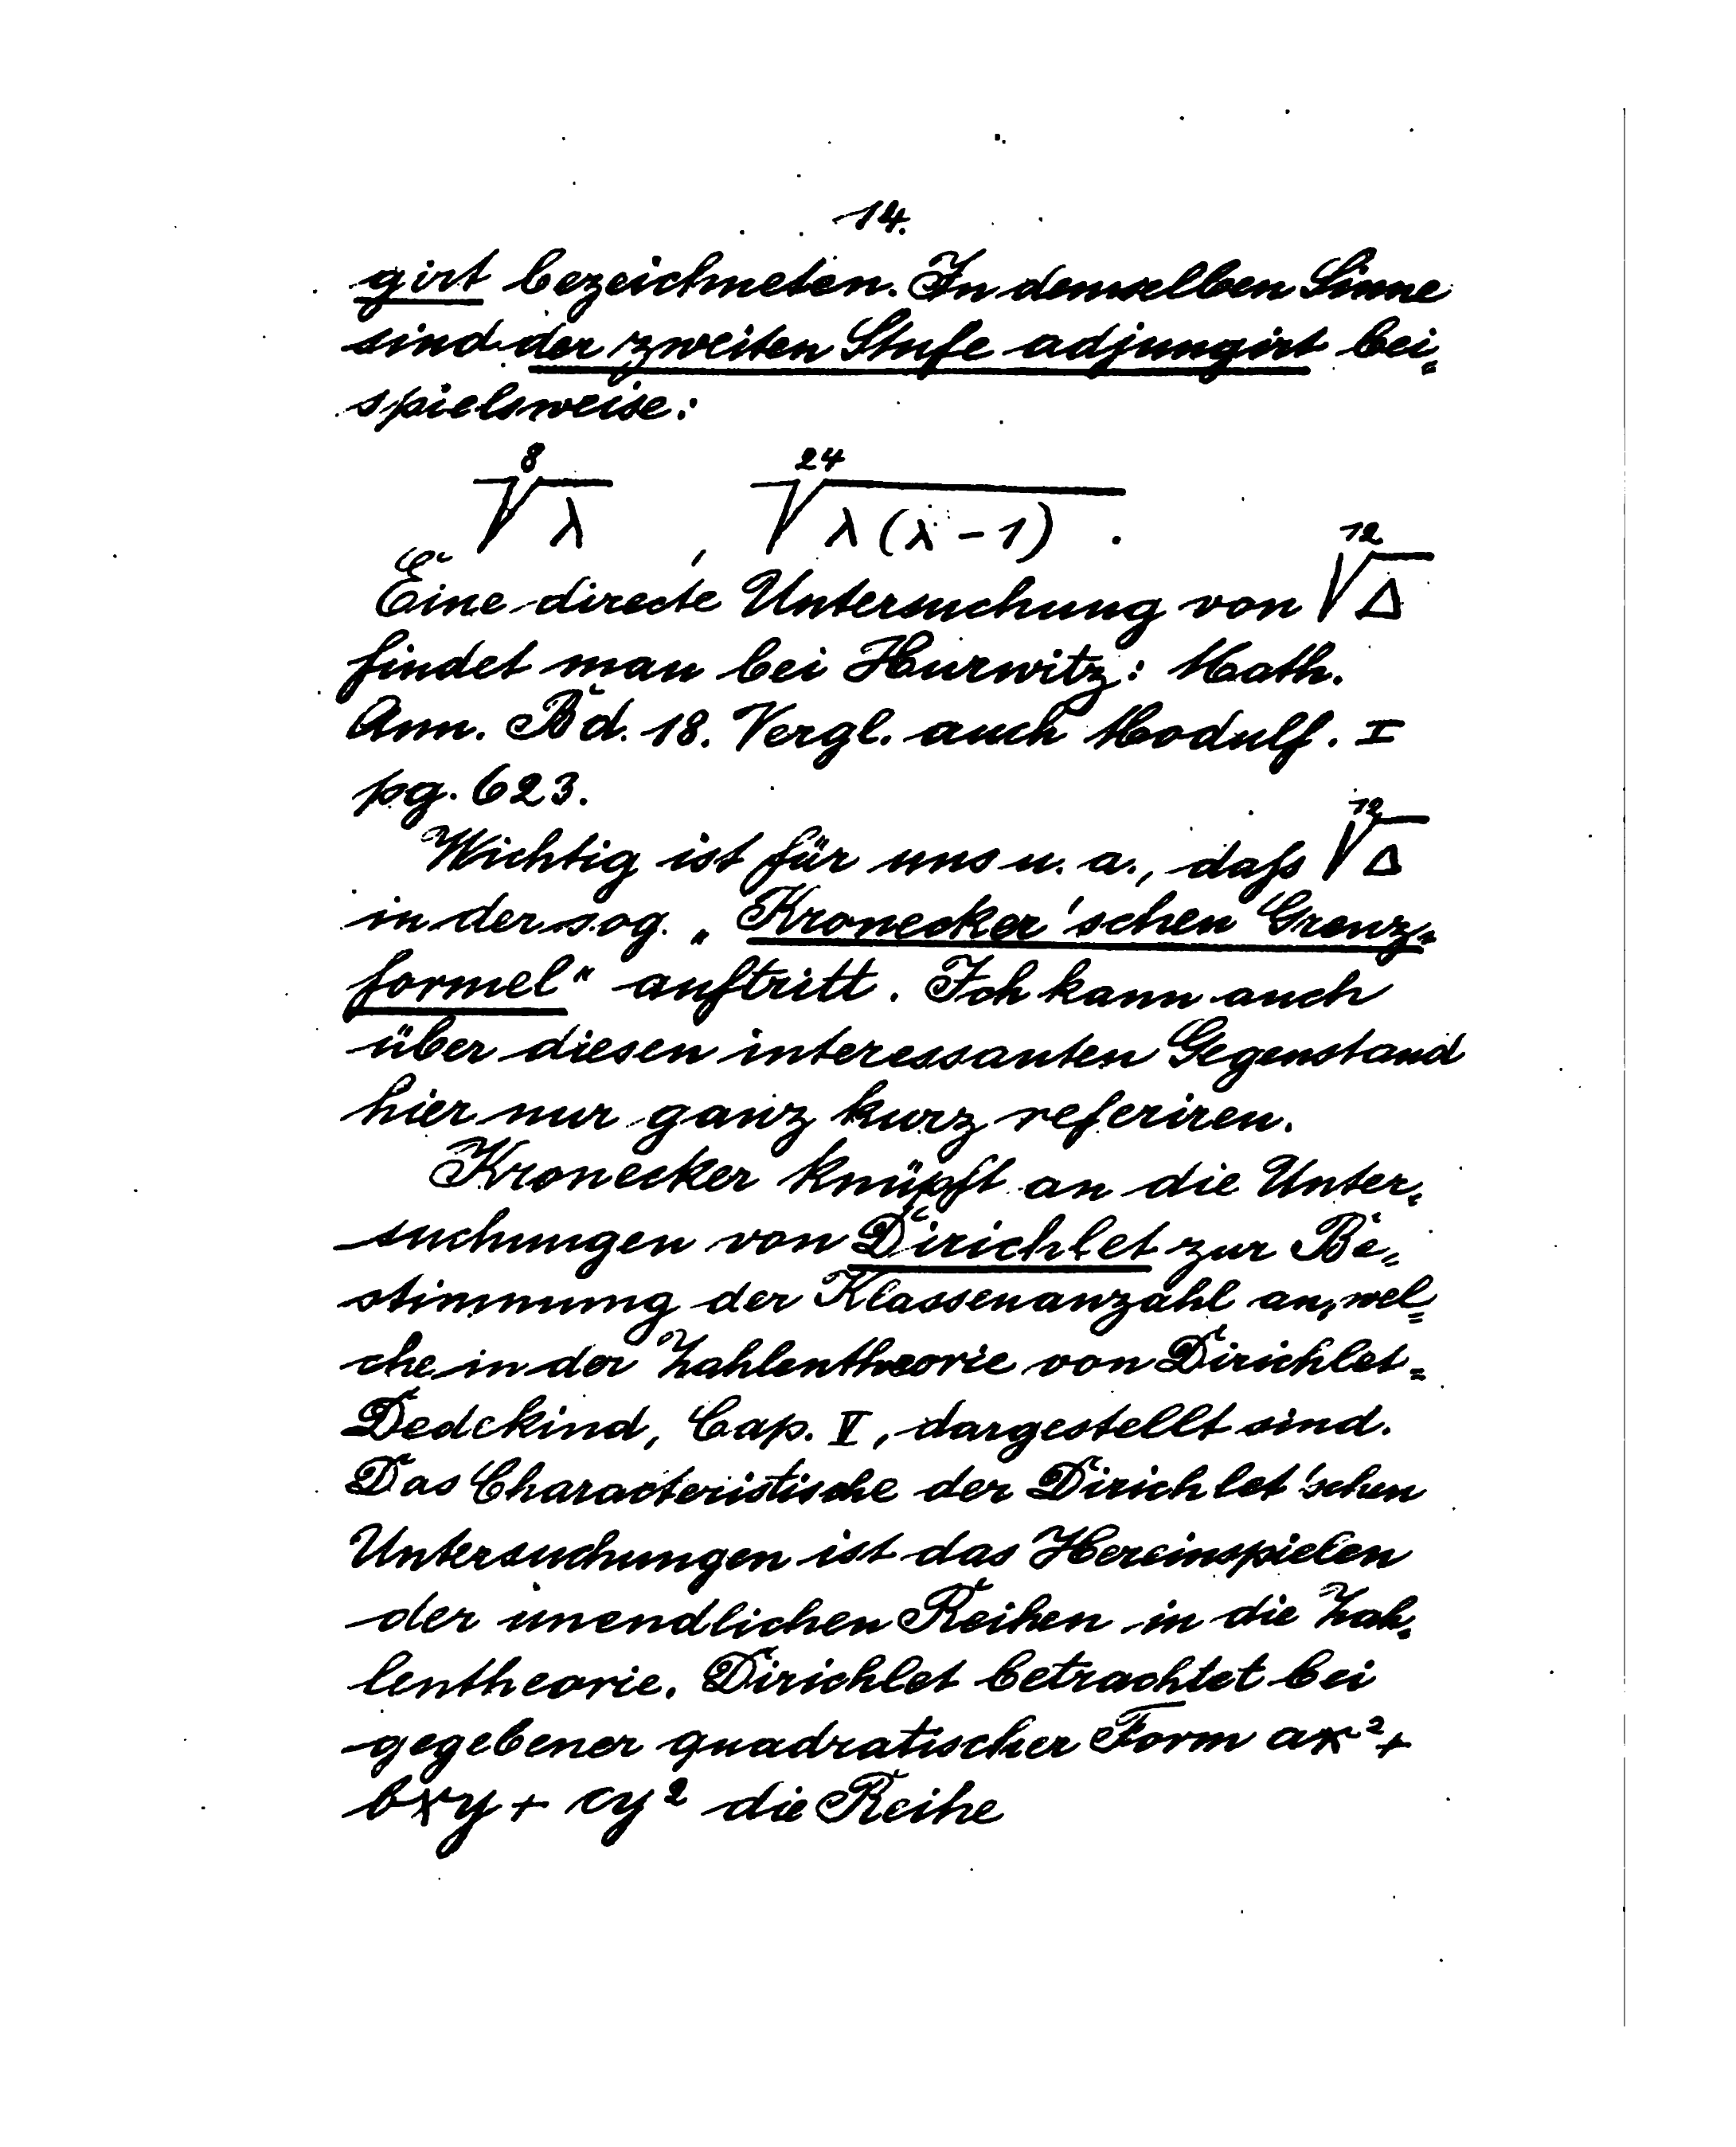 14.
girt bezeichneten. In demselben Sinne
sind der zweiten Stufe adjungirt bei=
spielsweise:
\sqrt[8]{λ} , \sqrt[24]{λ(λ-1)} .
Eine directe Untersuchung von \sqrt[12]{Δ}
findet man bei Hurwitz: Math.
Ann. Bd. 18. Vergl. auch Modulf. I
pg. 623.
Wichtig ist für uns u. a., daſs \sqrt[12]{Δ}
in der sog. „Kronecker'schen Grenz=
formel“ auftritt. Ich kann auch
über diesen interessanten Gegenstand
hier nur ganz kurz referiren.
Kronecker knüpft an die Unter=
suchungen von Dirichlet zur Be=
stimmung der Klassenanzahl an, wel=
che in der Zahlentheorie von Dirichlet=
Dedckind, Cap. V, dargestellt sind.
Das Characteristische der Dirichlet'schen
Untersuchungen ist das Hereinspielen
der unendlichen Reihen in die Zah=
lentheorie. Dirichlet betrachtet bei
gegebener quadratischer Form ax²+
bxy + cy² die Reihe